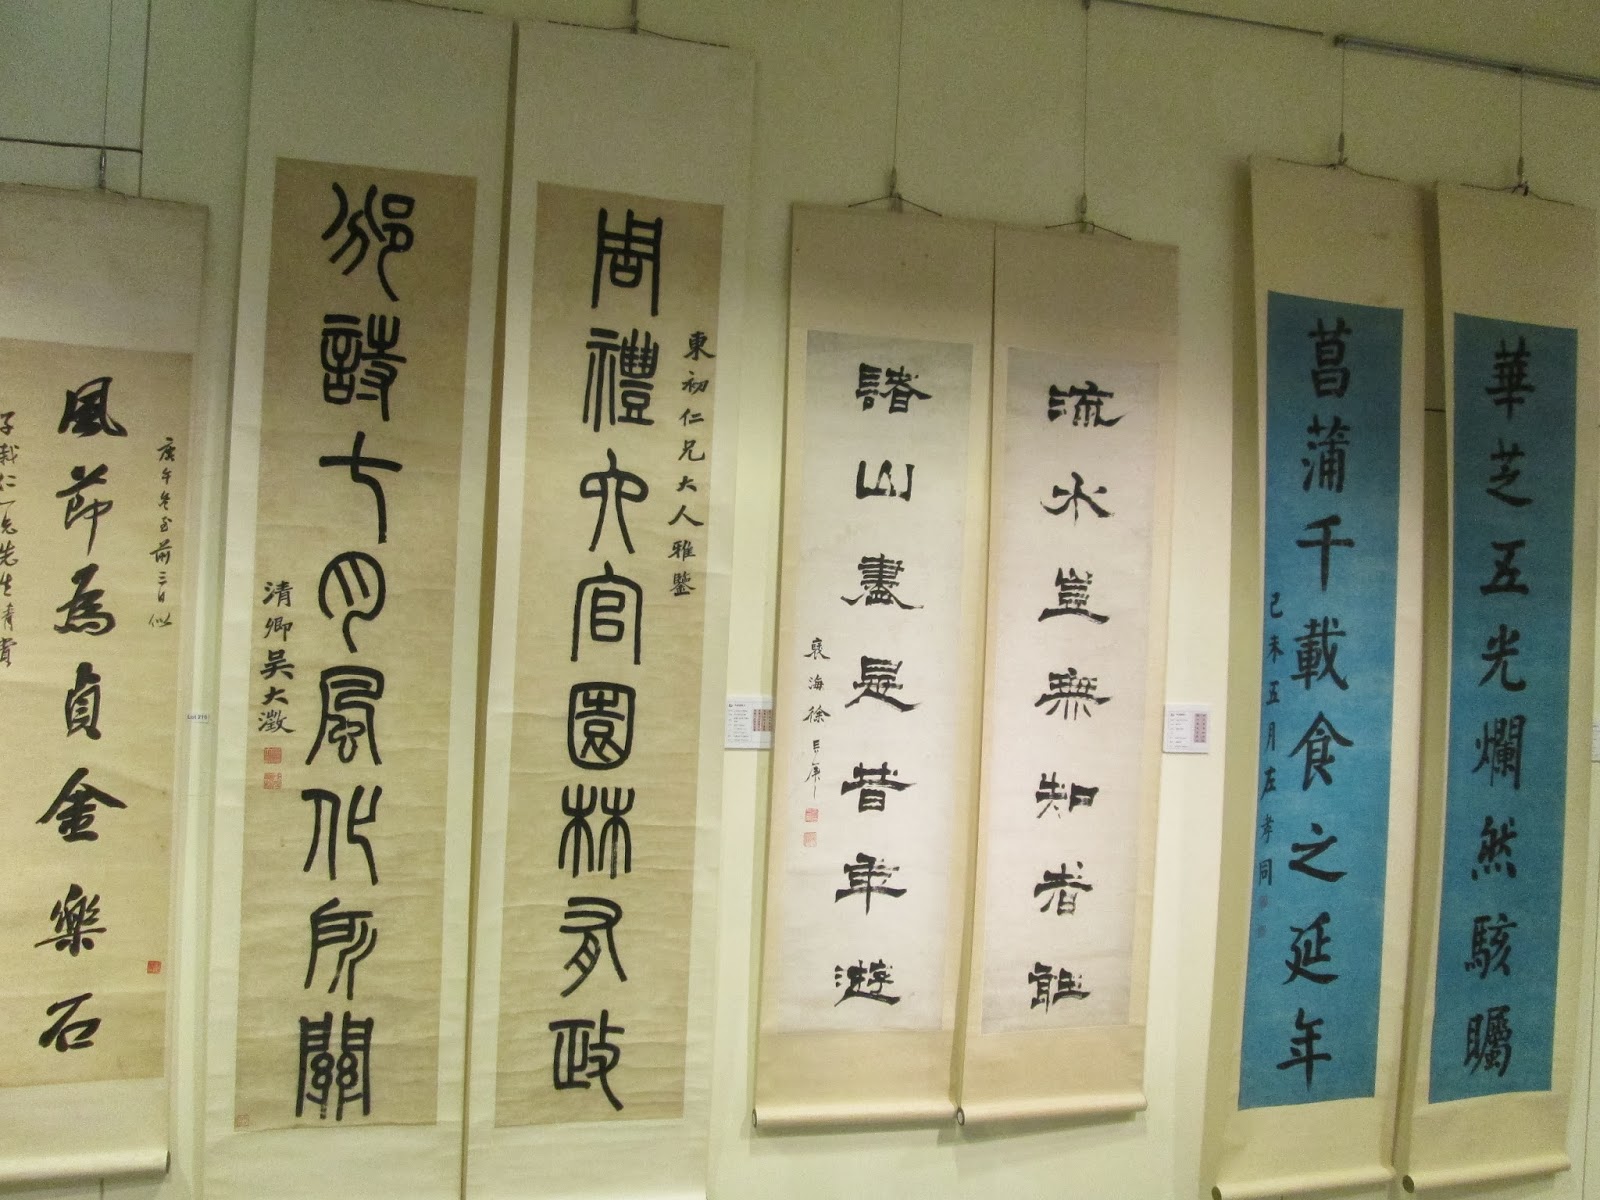 華芝五光爛然駭矚
菖蒲千載食之延年
己未五月左孝同
流水豈無知者能
諸山盡是昔年遊
褎海徐三庚
東初仁兄大人雅鑒
周禮六官園林有政
邠詩七月風化所關
清卿吳大澂
庚午冬至前三日似
風節為貞金樂石
仁兄先生清賞